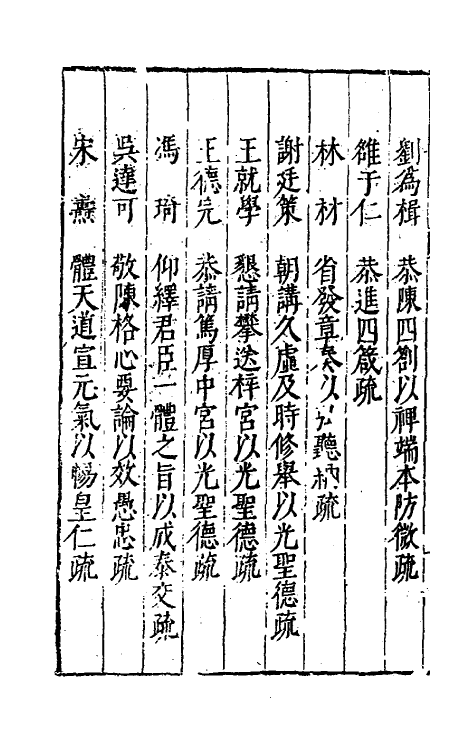 劉爲楫　恭陳四劄以禆端本防微疏
雒于仁　恭進四箴疏
林　材　省發章奏以公聽柄疏
謝廷策　朝講久虛及時修舉以光聖德疏
王就學　懇請攀送梓宮以光聖德疏
王德元　恭請篤厚中宮以光聖德疏
馮　琦　仰繹君臣一體之旨以成泰交疏
吳達可　敬陳格心要論以效愚忠疏
宋　燾　體天道宣元氣以暢皇仁疏